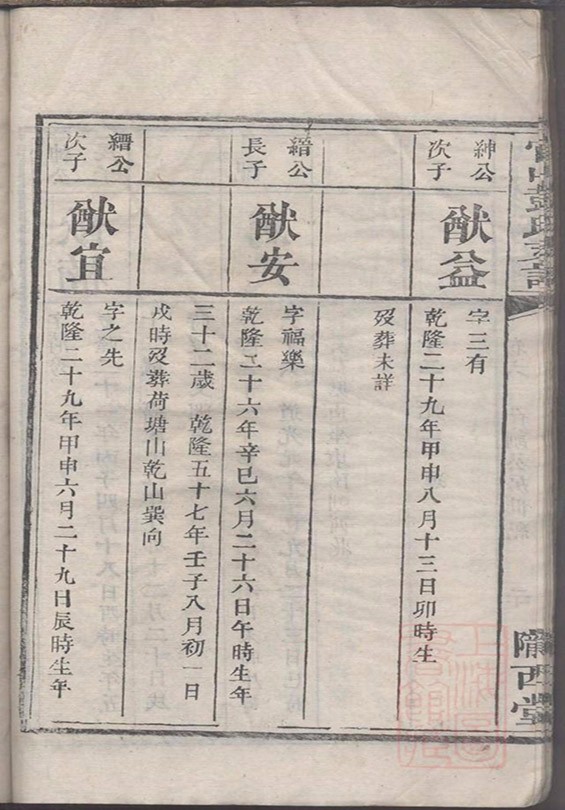 彭氏支譜
隴西堂
紳公
次子
猷益
字三有
乾隆二十九年甲申八月十三日卯時生
歿葬未詳
縉公
長子
猷安
字福樂
乾隆二十六年辛巳六月二十六日午時生年
三十二歲乾隆五十七年壬子八月初一日
戌時歿葬荷瑭山乾山巽向
縉公
次子
猷宜
字之先
乾隆二十九年甲申六月二十九日辰時生年